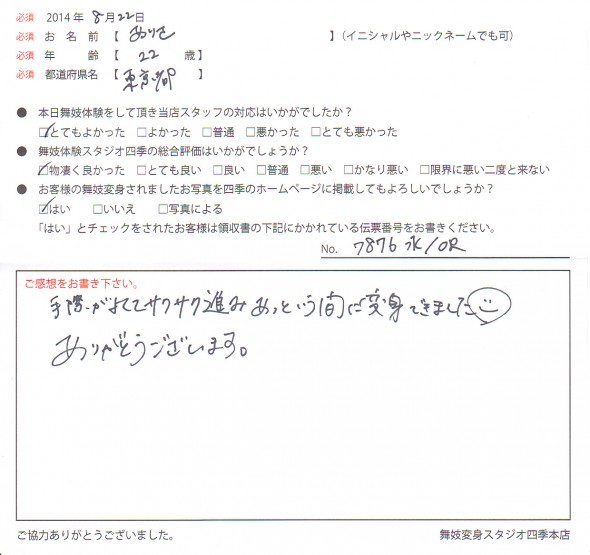 必須 2014年 8月22日
必須 お名前【 ありさ 】(イニシャルやニックネームでも可)
必須 年齢【 22 歳】
必須 都道府県名【 東京都 】
● 本日舞妓体験をして頂き当店スタッフの対応はいかがでしたか?
☑とてもよかった □よかった □普通 □悪かった □とても悪かった
● 舞妓体験スタジオ四季の総合評価はいかがでしょうか?
☑物凄く良かった □とても良い □良い □普通 □悪い □かなり悪い □限界に悪い二度と来ない
● お客様の舞妓変身されましたお写真を四季のホームページに掲載してもよろしいでしょうか?
☑はい □いいえ □写真による
「はい」とチェックをされたお客様は領収書の下記にかかれている伝票番号をお書きください。
No. 7876 水/OR
ご感想をお書き下さい。
手際がよくてサクサク進みあっという間に変身できました
ありがとうございます。
ご協力ありがとうございました。 舞妓変身スタジオ四季本店